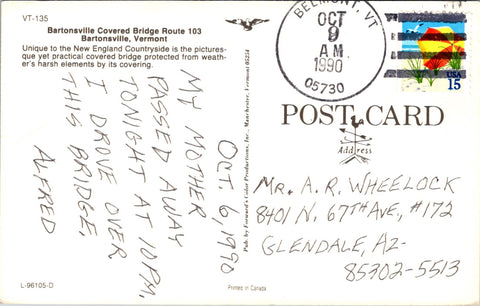 VT-135
Bartonsville Covered Bridge Route 103
Bartonsville, Vermont
Unique to the New England Countryside is the pictures-
que yet practical covered bridge protected from weath-
er's harsh elements by its covering.
BELMONT, VT
OCT
9
AM
1990
05730
USA
15
POST CARD
Address
OCT. 6, 1990
MY MOTHER
PASSED AWAY
TONIGHT AT 10PM.
I DROVE OVER
THIS BRIDGE.
ALFRED
Pub. by Forward's Color Productions, Inc., Manchester, Vermont 05254
MR. A. R. WHEELOCK
8401 N. 67TH AVE, #172
GLENDALE, AZ-
85302-5513
L-96105-D
Printed in Canada